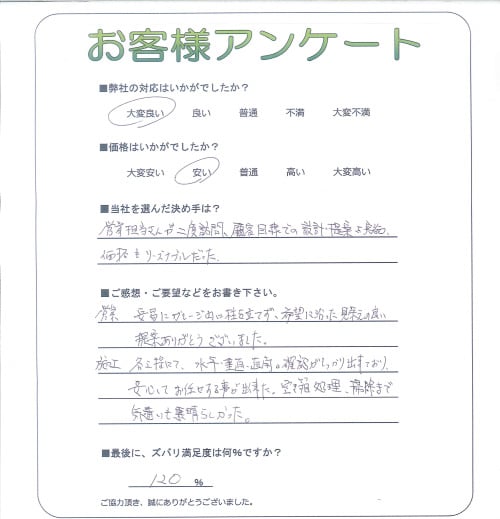 お客様アンケート
■弊社の対応はいかがでしたか？
大変良い 良い 普通 不満 大変不満
■価格はいかがでしたか？
大変安い 安い 普通 高い 大変高い
■当社を選んだ決め手は？
営業担当さんが二度訪問、顧客目線での設計・提案を実施。
価格もリーズナブルだった。
■ご感想・ご要望などをお書き下さい。
営業 安易にガレージ内に柱を立てず、希望に沿った見栄えの良い
提案ありがとうございました。
施工 各工程にて、水平・垂直・直角の確認がしっかり出来ており、
安心してお任せする事が出来た。空き箱処理、掃除まで
気遣いも素晴らしかった。
■最後に、ズバリ満足度は何%ですか？
120 %
ご協力頂き、誠にありがとうございました。